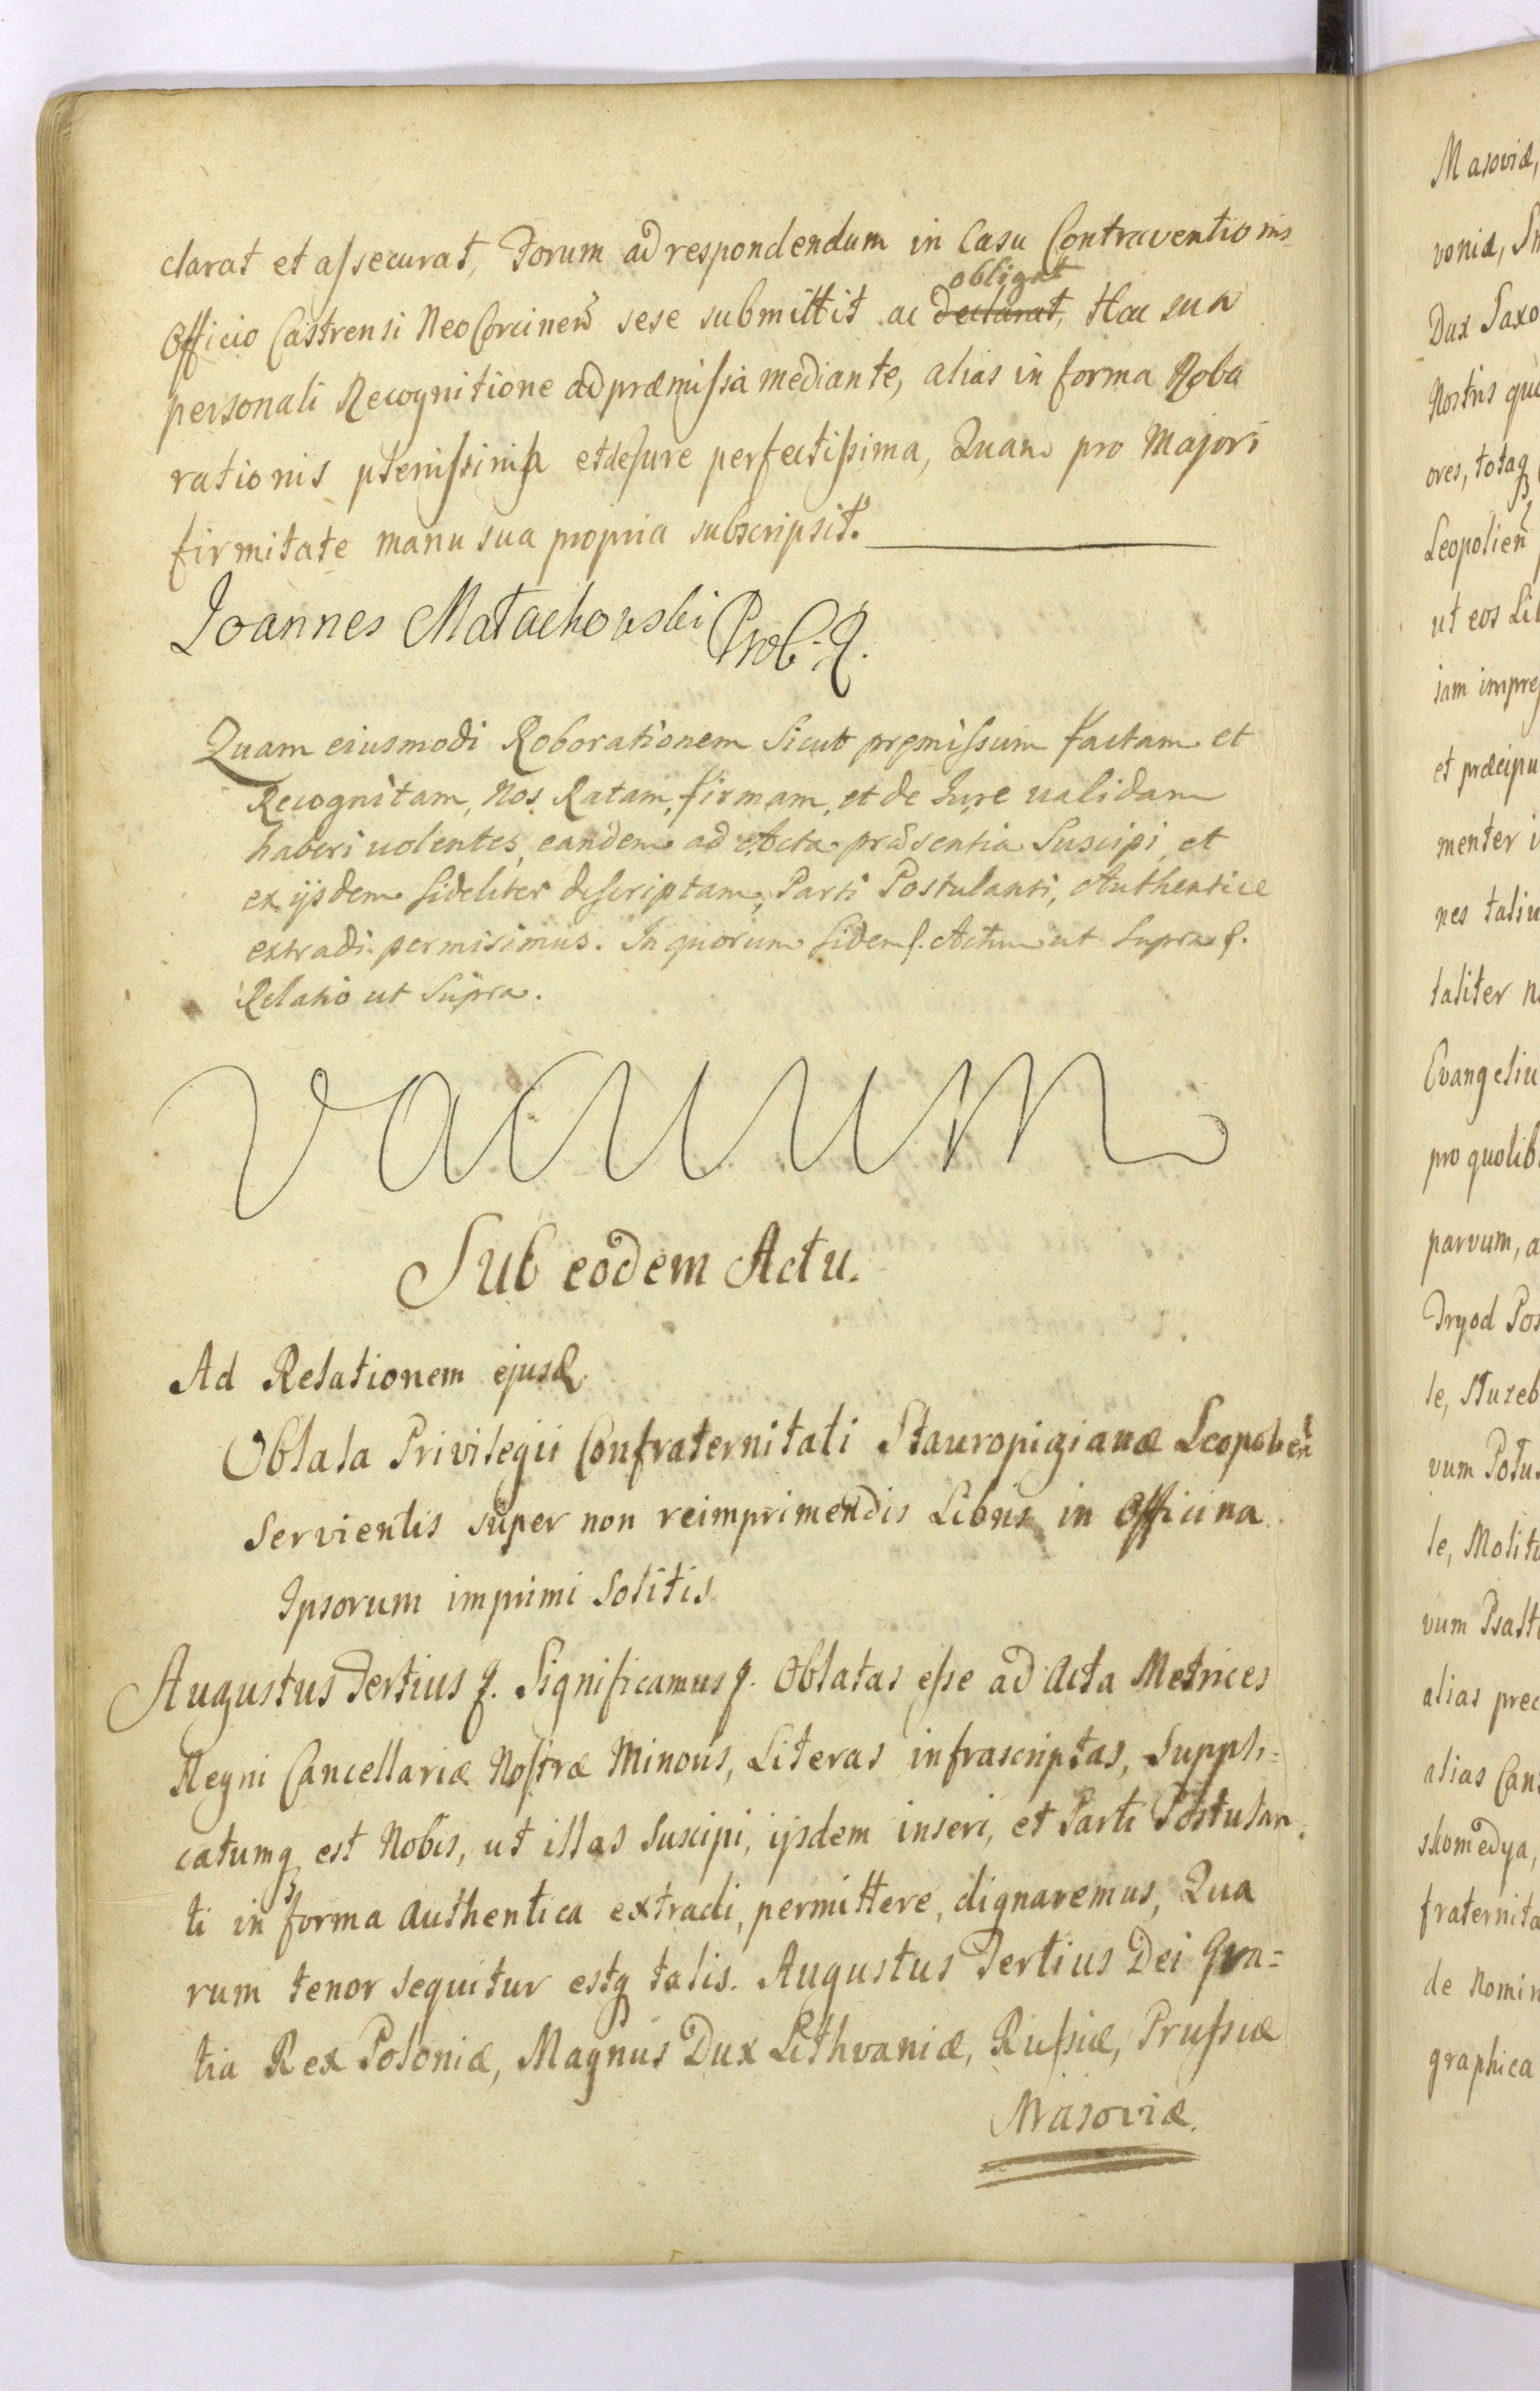 clarat et assecurat, Forum ad respondendum in Casu Contraventionis
Officio Castrensi NeoCorcinen̄ sese submittit ac declarat, obligat Hac sua
personali Recognitione ad præmissa mediante, alias in forma Robo
rationis plenissima et de Jure perfectissima, Quam pro Majori
firmitate manu sua propria subscripsit.
Joannes Małachowski
Quam eiusmodi Roborationem Sicut premissum factam et
Recognitam, Nos Ratam, firmam, et de Jure validam
haberi volentes, eandem ad Acta præsentia Suscipi et
ex ijsdem fideliter descriptam, Parti Postulanti, Authentice
extradi permisimus. In quorum fidem f. Actum ut Supra f.
Relatio ut Supra.
Vacuum
Sub eodem Actu.
Ad Relationem ejusd
Oblata Privilegii Confraternitati Stauropigianæ Leopolien̄
Servientis super non reimprimendis Libris in Officina
Ipsorum imprimi Solitis
Augustus Tertius f. Significamus f. Oblatas esse ad Acta Metrices
Regni Cancellariæ Nostræ Minoris, Literas infrascriptas, Suppli=
catumq est Nobis, ut illas Suscipi, ijsdem inseri, et Parti Postulan=
ti in forma Authentica extradi, permittere, dignaremus, Qua
rum tenor sequitur estq talis. Augustus Tertius Dei Gra=
tia Rex Poloniæ, Magnus Dux Lithvaniæ, Russiæ, Prussiæ
Masoviæ.
Masoviæ,
voniæ, Sm
Dux Saxo
Nostris qu
ores, totaq
Leopolien̄
ut eos Lib
iam impre
et præcipu
menter i
nes taliu
taliter n
Evangeliu
pro quolib
parvum, a
Tryod Pos
le, Służeb
vum Potu
le, Molitw
vum Psalt
alias prec
alias Can
skomedya,
fraternita
de Nomin
graphica